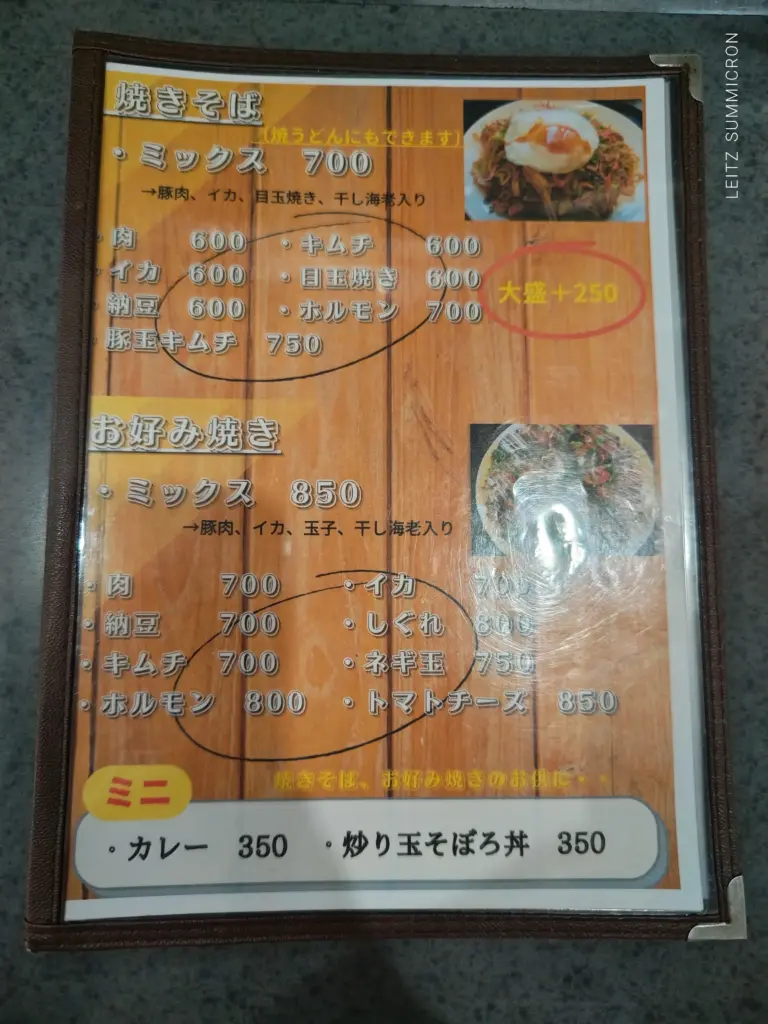 焼きそば
(焼うどんにもできます)
・ミックス 700
→豚肉、イカ、目玉焼き、干し海老入り
・肉 600 ・キムチ 600
・イカ 600 ・目玉焼き 600
・納豆 600 ・ホルモン 700
・豚玉キムチ 750
大盛+250
お好み焼き
・ミックス 850
→豚肉、イカ、玉子、干し海老入り
・肉 700 ・イカ 700
・納豆 700 ・しぐれ 800
・キムチ 700 ・ネギ玉 750
・ホルモン 800 ・トマトチーズ 850
焼きそば、お好み焼きのお供に・・
ミニ
・カレー 350 ・炒り玉そぼろ丼 350
LEITZ SUMMICRON